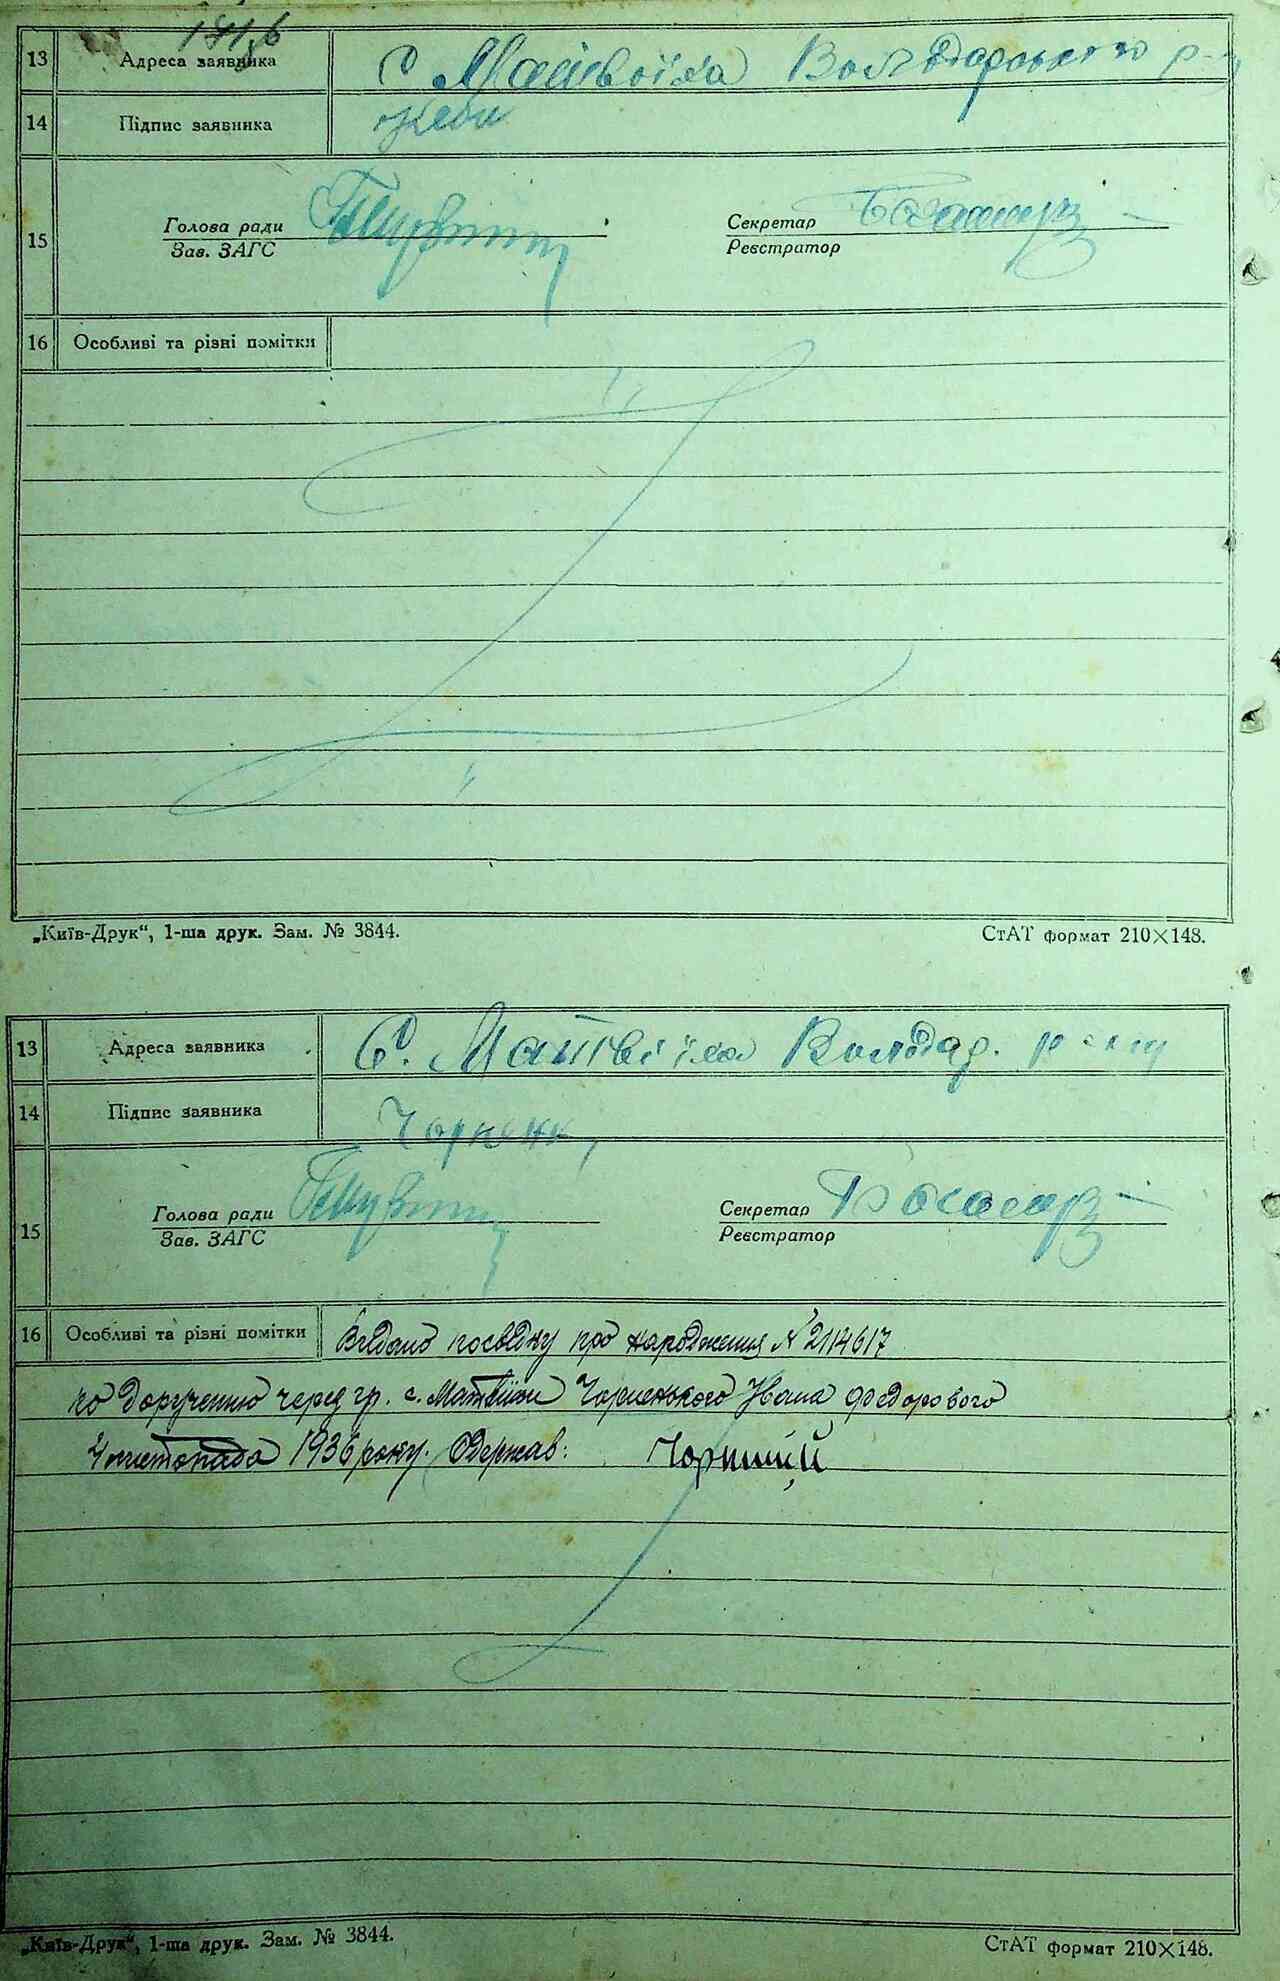 13 Адреса заявника с Матвіїха Володарського р-
14 Підпис заявника
15 Голова ради Секретар
Зав. ЗАГС Реєстратор
16 Особливі та різні помітки
„Київ-Друк“, 1-ша друк. Зам. № 3844. СтАТ формат 210×148.
13 Адреса заявника С. Матвіїха Володар. р-ну
14 Підпис заявника
15 Голова ради Секретар
Зав. ЗАГС Реєстратор
16 Особливі та різні помітки Видано посвідку про народження N 2114617
по дорученню через гр. с. Матвіїхи Чорненького Івана Федорового
4 листопада 1936 року. Одержав:
„Київ-Друк“, 1-ша друк. Зам. № 3844. СтАТ формат 210×148.